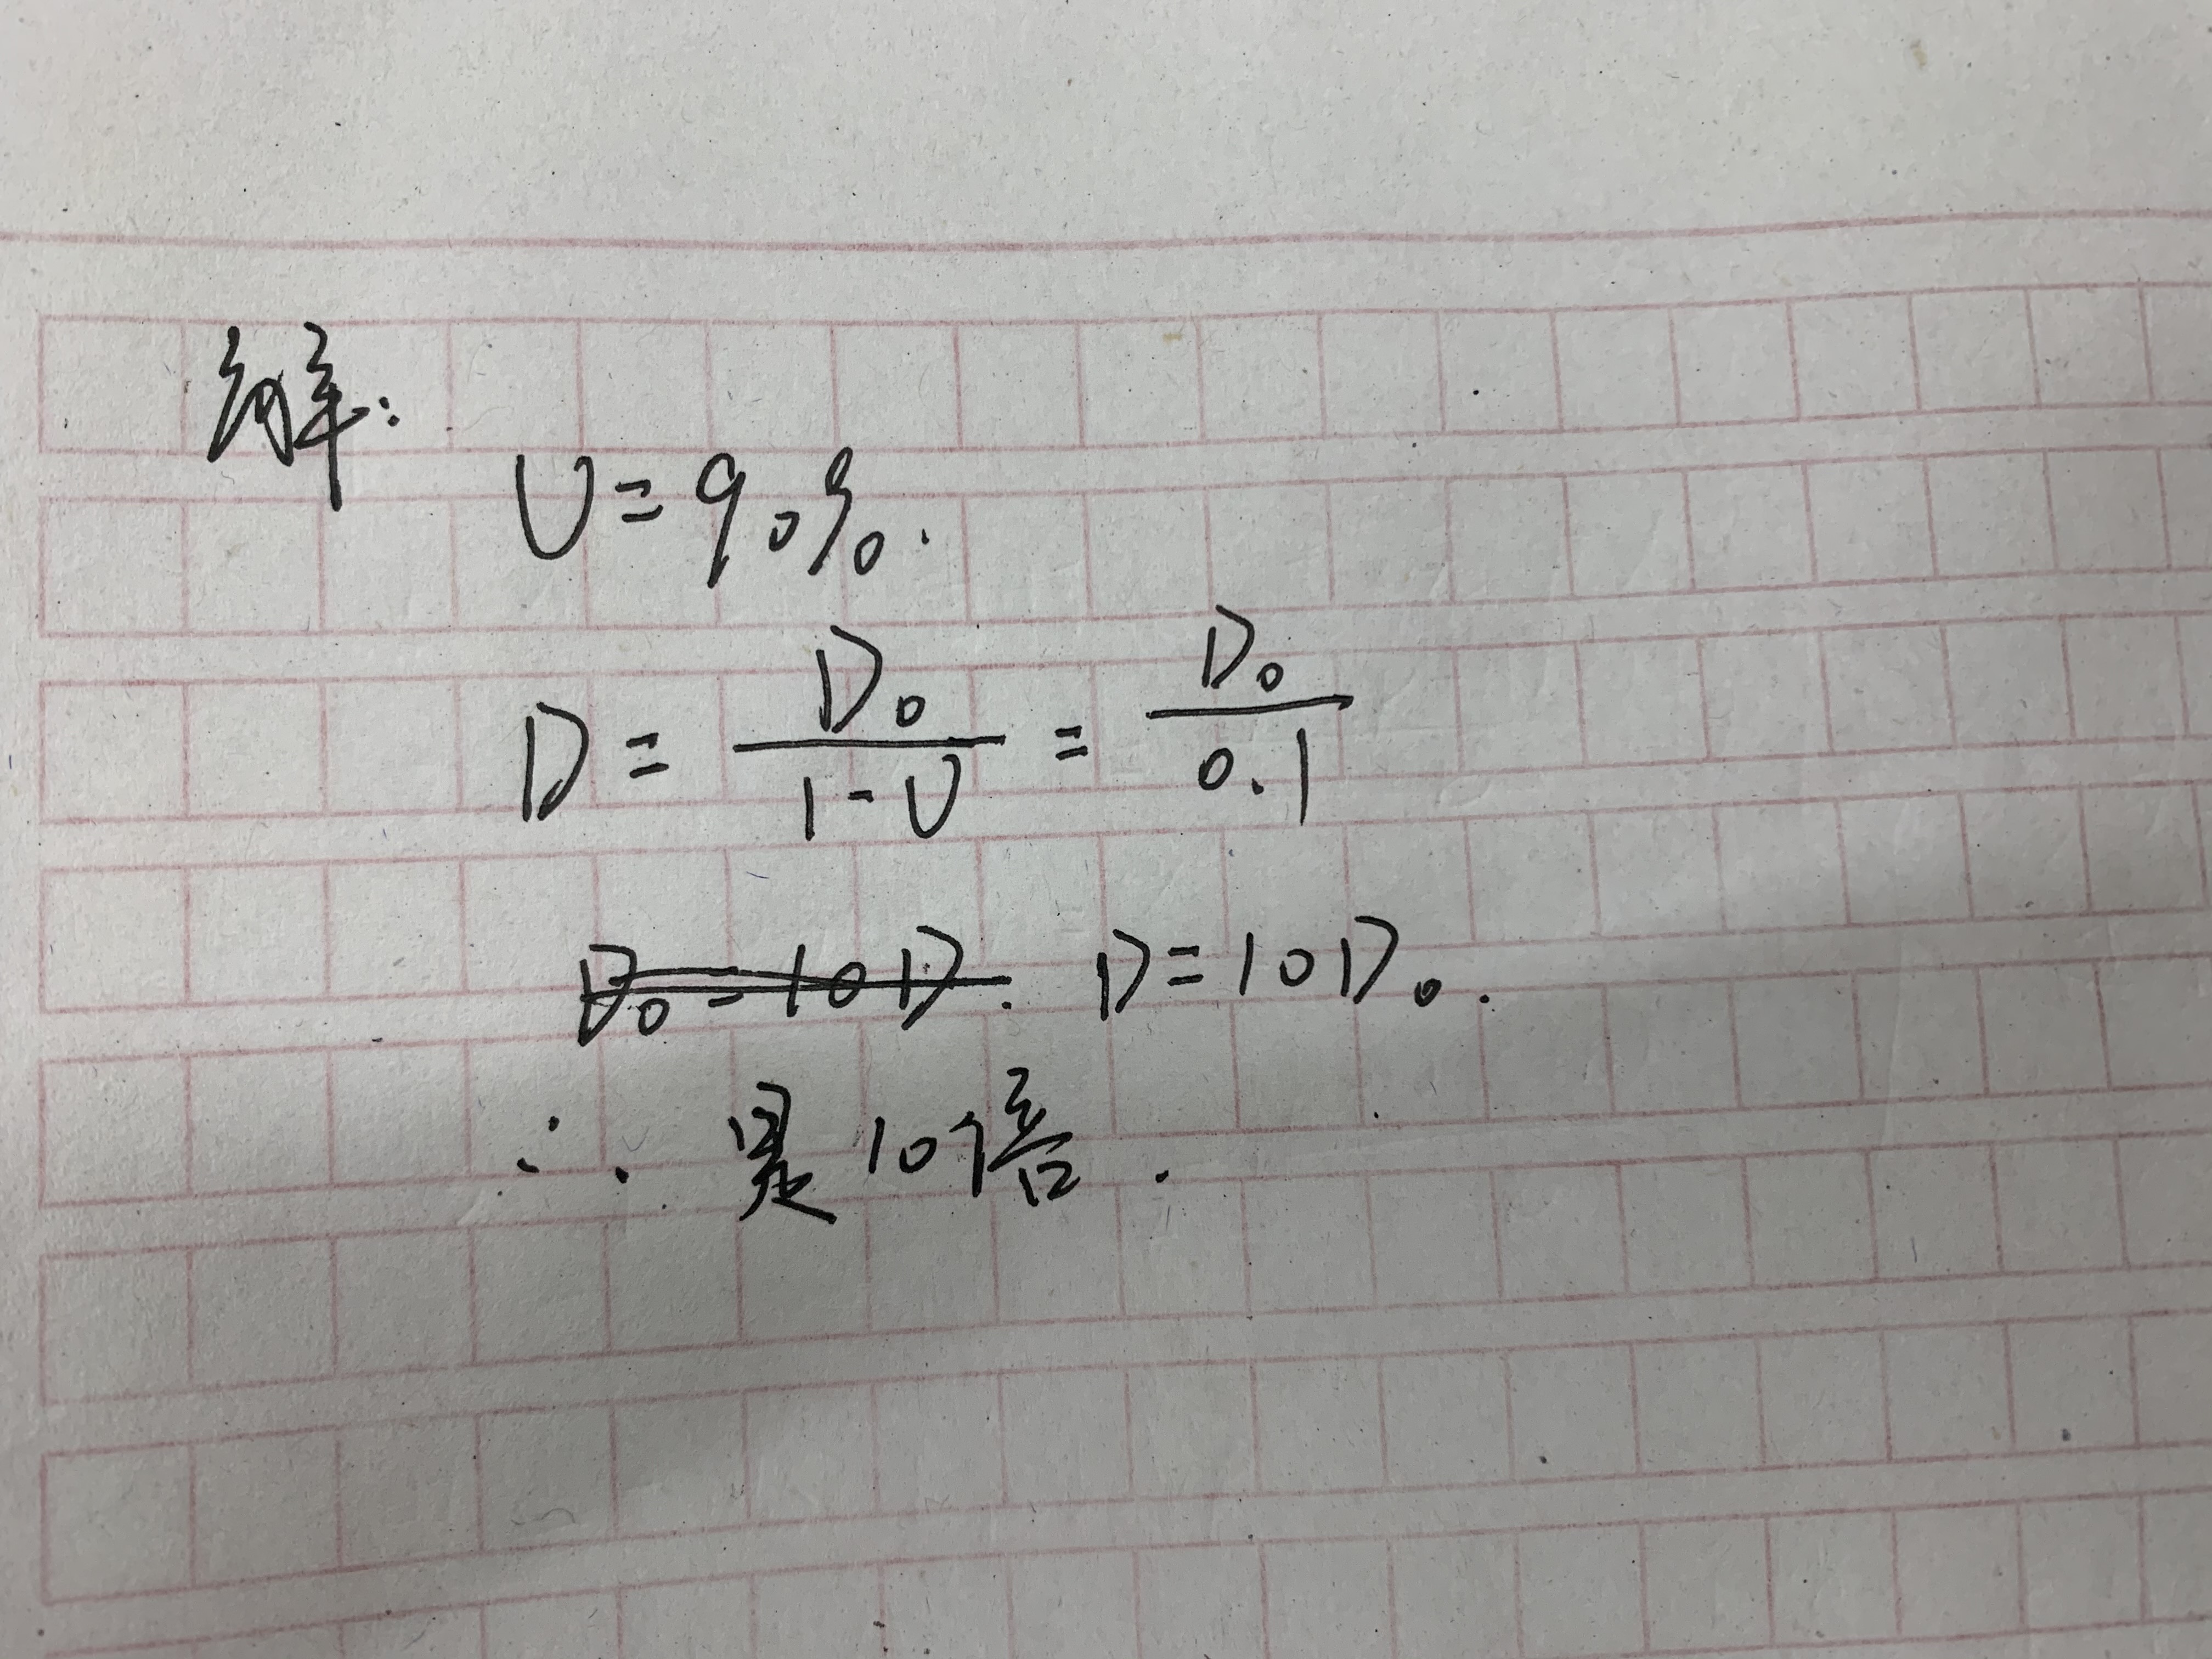 解:
U = 90%.
D = D₀/(1-U) = D₀/0.1
D₀ = 10D. D = 10D₀.
∴ 是10倍.